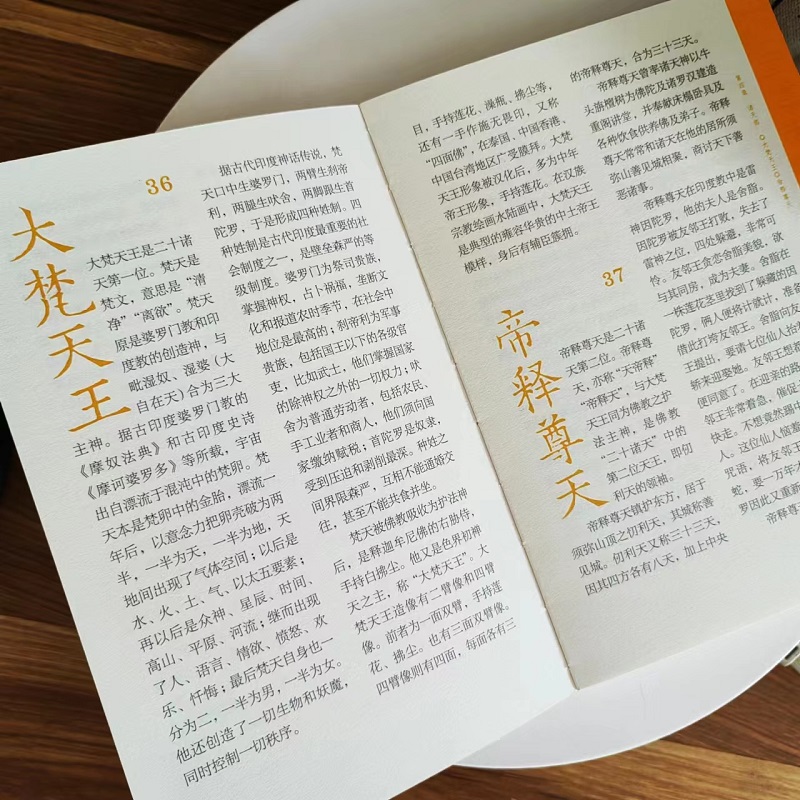 36
大梵天王
大梵天王是二十诸
天第一位。梵天是
梵文，意思是“清
净”“离欲”。梵天
原是婆罗门教和印
度教的创造神，与
毗湿奴、湿婆（大
自在天）合为三大
主神。据古印度婆罗门教的
《摩奴法典》和古印度史诗
《摩诃婆罗多》等所载，宇宙
出自漂流于混沌中的梵卵。梵
天本是梵卵中的金胎，漂流一
年后，以意念力把卵壳破为两
半，一半为天，一半为地，天
地间出现了气体空间；以后是
水、火、土、气、以太五要素；
再以后是众神、星辰、时间、
高山、平原、河流；继而出现
了人、语言、情欲、愤怒、欢
乐、忏悔；最后梵天自身也一
分为二，一半为男，一半为女。
他还创造了一切生物和妖魔，
同时控制一切秩序。
据古代印度神话传说，梵
天口中生婆罗门，两臂生刹帝
利，两腿生吠舍，两脚跟生首
陀罗，于是形成四种姓制。四
种姓制是古代印度最重要的社
会制度之一，是壁垒森严的等
级制度。婆罗门为祭司贵族，
掌握神权，占卜祸福，垄断文
化和报道农时季节，在社会中
地位是最高的；刹帝利为军事
贵族，包括国王以下的各级官
吏，比如武士，他们掌握国家
的除神权之外的一切权力，吠
舍为普通劳动者，包括农民、
手工业者和商人，他们须向国
家缴纳赋税；首陀罗是奴隶，
受到压迫和剥削最深。种姓之
间界限森严，互相不能通婚交
往，甚至不能共食并坐。
梵天被佛教吸收为护法神
后，是释迦牟尼佛的右胁侍，
手持白拂尘。他又是色界初禅
天之主，称“大梵天王”。大
梵天王造像有二臂像和四臂
像。前者为一面双臂，手持莲
花、拂尘。也有三面双臂像。
四臂像则有四面，每面各有三
目，手持莲花、澡瓶、拂尘等，
还有一手作施无畏印，又称
“四面佛”，在泰国、中国香港、
中国台湾地区广受膜拜。大梵
天王形象被汉化后，多为中年
帝王形象，手持莲花。在汉族
宗教绘画水陆画中，大梵天王
是典型的雍容华贵的中土帝王
模样，身后有辅臣簇拥。
37
帝释尊天
帝释尊天是二十诸
天第二位。帝释尊
天，亦称“天帝释”
“帝释”，与大梵
天王同为佛教之护
法主神，是佛教
“二十诸天”中的
第二位天王，即忉
利天的领袖。
帝释尊天镇护东方，居于
须弥山顶之忉利天，其城称善
见城。忉利天又称三十三天，
因其四方各有八天，加上中央
的帝释尊天，合为三十三天。
帝释尊天曾率诸天神以牛
头旃檀树为佛陀及诸罗汉建造
重阁讲堂，并奉献床榻卧具及
各种饮食供养佛及弟子。帝释
尊天常常和诸天在他的居所须
弥山善见城相聚，商讨天下善
恶诸事。
帝释尊天在印度教中是雷
神因陀罗，他的夫人是舍脂。
因陀罗被友邻王打败，失去了
雷神之位，四处躲避，非常可
怜。友邻王贪恋舍脂美貌，欲
与其同房，成为夫妻。舍脂在
一株莲花茎里找到了躲藏的因
陀罗，俩人便将计就计，准备
借此打垮友邻王。舍脂向友
王提出，要请七位仙人抬
轿来迎娶她。友邻王想都
便同意了。在迎亲的路
邻王非常着急，催促
快走。不想竟然踢
人。这位仙人恼羞
咒语，将友邻王
蛇，要一万年
罗因此又重新
帝释尊